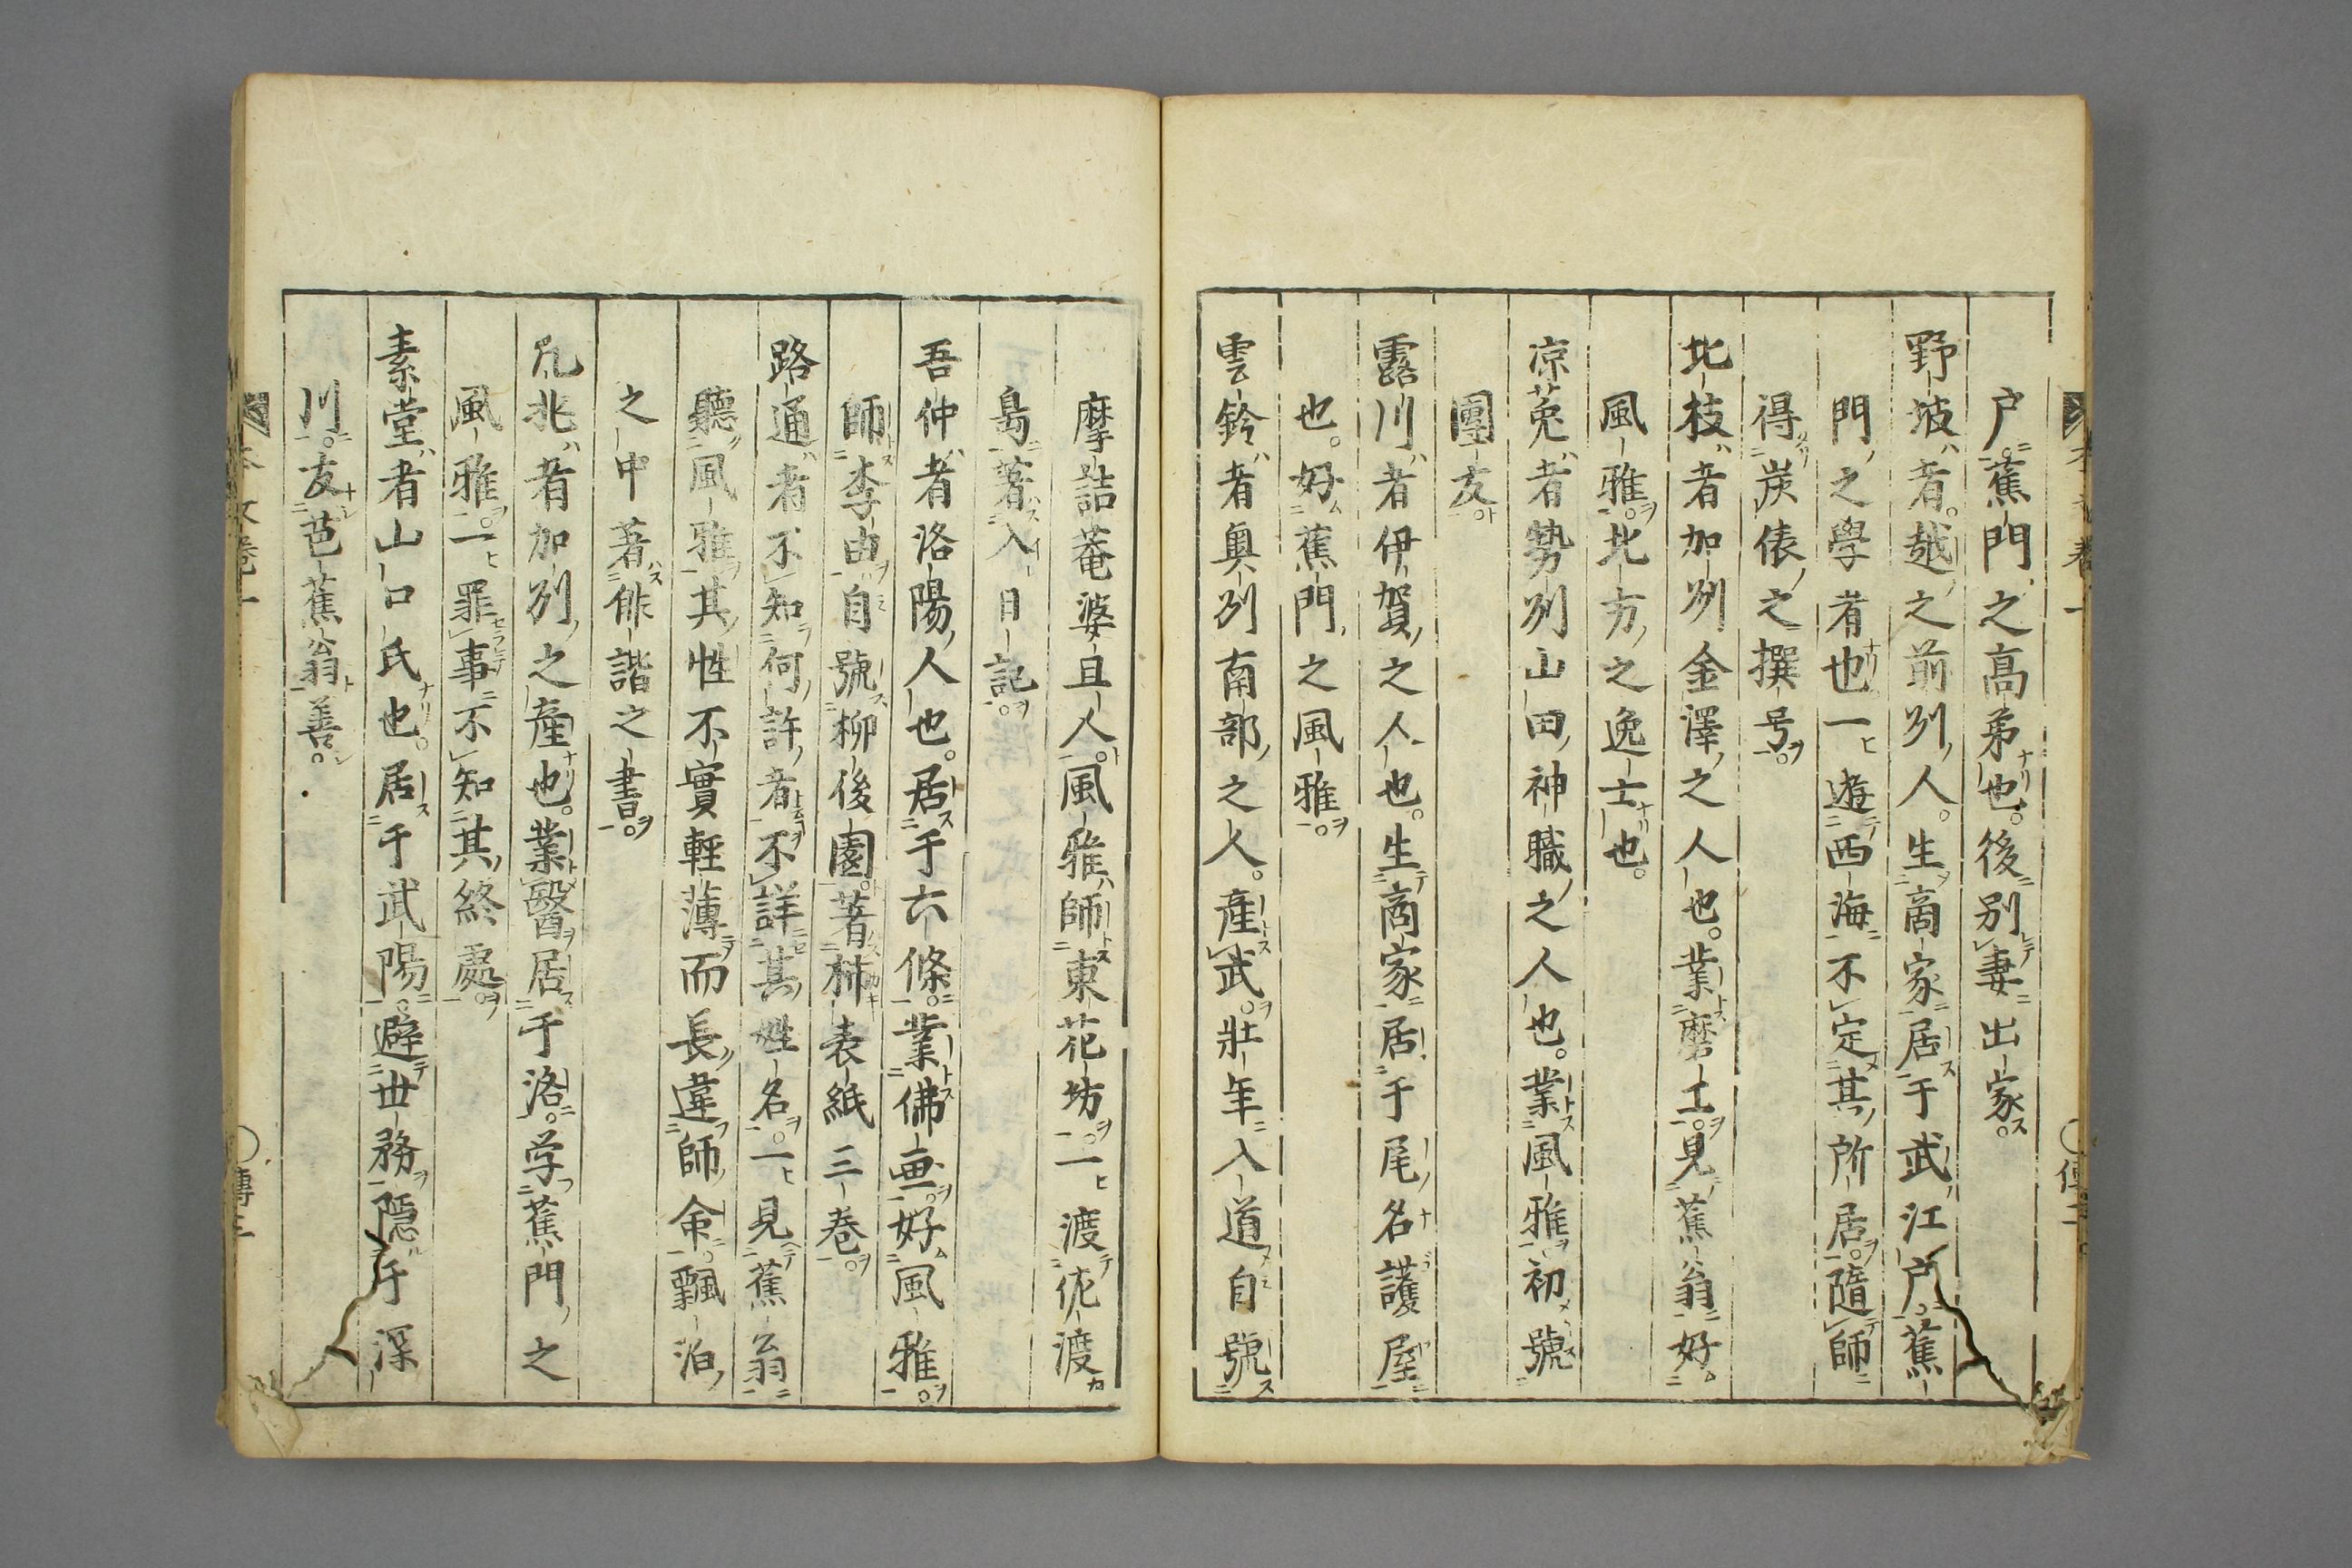 戸蕉門之高弟也。後別妻出家。
野坡者。越之前刕人。生商家居于武江戸。蕉
門之學者也一遊西海不定其所居。隨師
得炭俵之撰号。
北枝者加刕金澤之人也。業磨工。見蕉翁好
風雅。北方之逸士也。
凉菟者勢刕山田神職之人也。業風雅初號
團友。
露川者伊賀之人也。生商家居于尾名護屋
也。好蕉門之風雅。
雲鈴者奥刕南部之人。産武。壯年入道自號
摩詰菴婆且人。風雅師東花坊。一渡佐渡
島著入日記。
吾仲者洛陽人也。居于六條。業佛画。好風雅。
師李由自號柳後園。著柿表紙三巻。
路通者不知何許者不詳其姓名。一見蕉翁
聽風雅其性不實輕薄而長違師命。飄泊
之中著俳諧之書。
凡兆者加刕之産也。業醫居于洛。学蕉門之
風雅。一罪事不知其終處。
素堂者山口氏也。居于武陽。避世務隠于深
川。友芭蕉翁善。